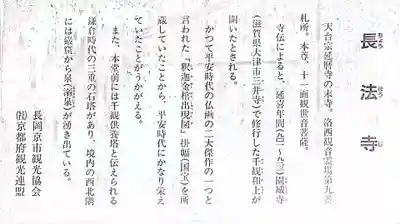 長法寺
ちょう ほう じ
天台宗延暦寺の末寺。洛西観音霊場第九番
札所。本尊、十一面観世音菩薩。
寺伝によると、延喜年間(九〇一〜九二三)園城寺
(滋賀県大津市三井寺)で修行した千観和上が
開いたとされる。
かつて平安時代の仏画の二大傑作の一つと
言われた「釈迦金棺出現図」掛幅(国宝)を所
蔵していたことから、平安時代にかなり栄え
ていたことがうかがえる。
また、本堂前には千観供養塔と伝えられる
鎌倉時代の三重の石塔があり、境内の西北隅
には巌窟から泉(清泉)が湧き出ている。
長岡京市観光協会
㈳京都府観光連盟